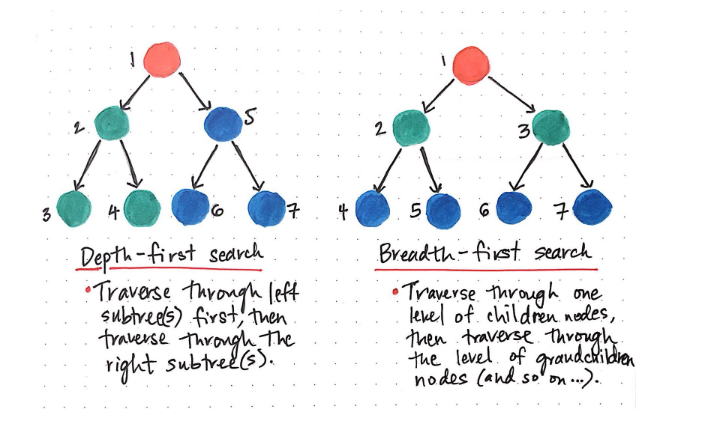 1
2
5
3
4
6
7
Depth-first search
•Traverse through left
subtree(s) first, then
traverse through the
right subtree(s).
1
2
3
4
5
6
7
Breadth-first search
•Traverse through one
level of children nodes,
then traverse through
the level of grandchildren
nodes (and so on...).